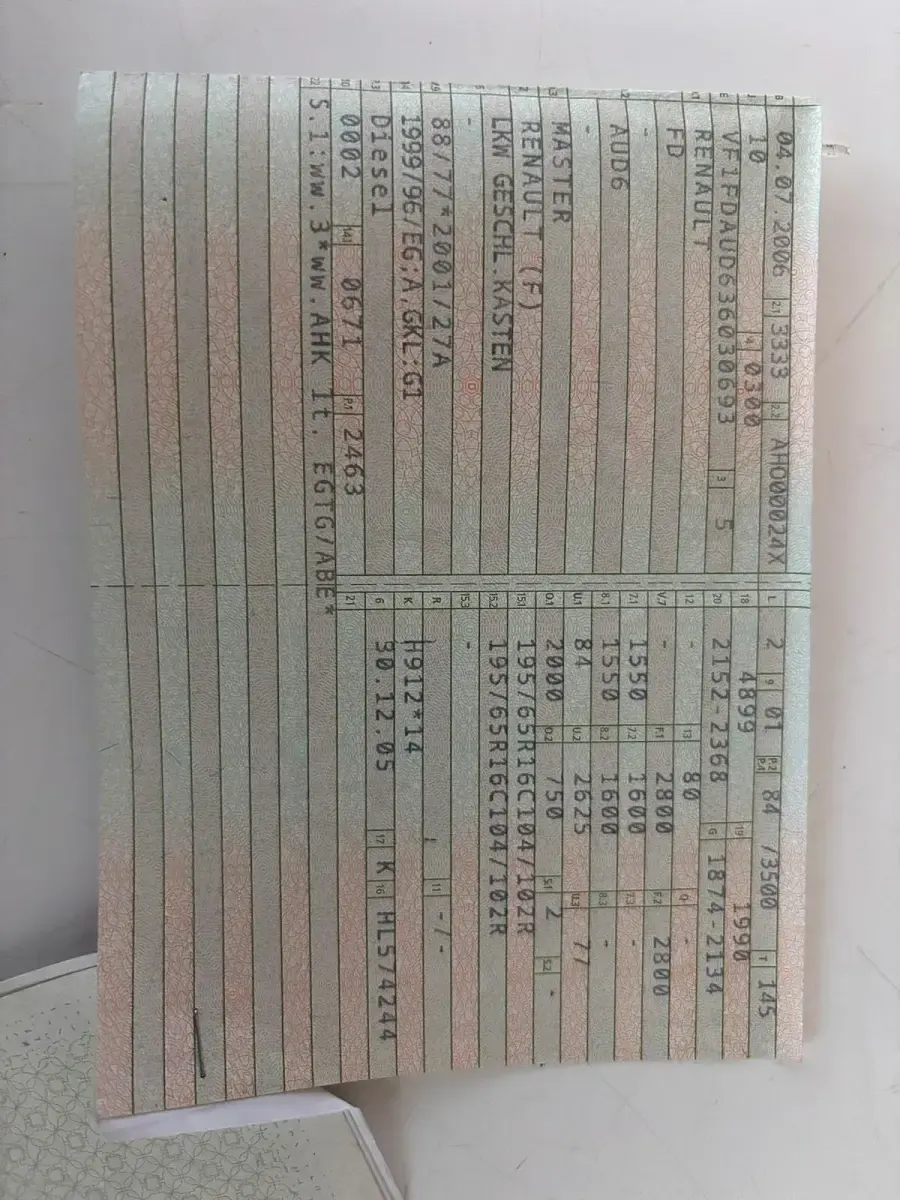 B 04.07.2006 2.1 3333 2.2 AHO00024X L 2 9 01 P.2 P.4 84 /3500 T 145
J 10 4 0300 18 4899 19 1990
E VF1FDAUD636030693 3 5 20 2152-2368 G 1874-2134
D.1 RENAULT 12 - 13 80 Q -
FD V.7 - F.1 2800 F.2 2800
- 7.1 1550 7.2 1600 7.3 -
D.2 AUD6 8.1 1550 8.2 1600 8.3 -
- U.1 84 U.2 2625 U.3 77
D.3 MASTER O.1 2000 O.2 750 S.1 2 S.2 -
2 RENAULT (F) 15.1 195/65R16C104/102R
5 LKW GESCHL.KASTEN 15.2 195/65R16C104/102R
- 15.3 -
V.9 88/77*2001/27A R 11 -/-
14 1999/96/EG;A,GKL:G1 K H912*14
P.3 Diesel 6 30.12.05 17 K 16 HL574244
10 0002 14.1 0671 P.1 2463 21
22 S.1:ww.3*ww.AHK lt. EGTG/ABE*